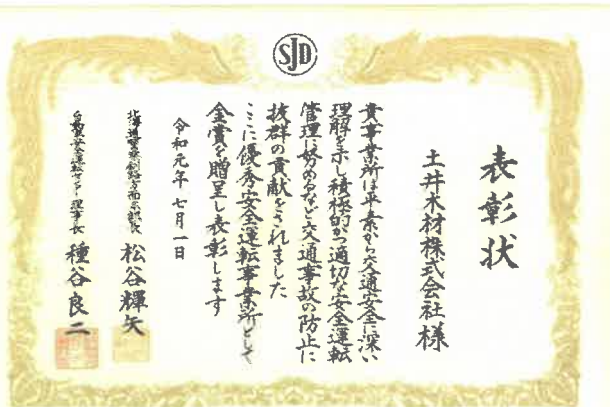 SJD
表彰状
土井木材株式会社様
貴事業所は平素から交通安全に深い
理解を示し積極的かつ適切な安全運転
管理に努めるなど交通事故の防止に
抜群の貢献をされました
ここに優秀安全運転事業所として
金賞を贈呈し表彰します
令和元年七月一日
北海道警察釧路方面本部長 松谷輝矢
自動車安全運転センター理事長 種谷良二